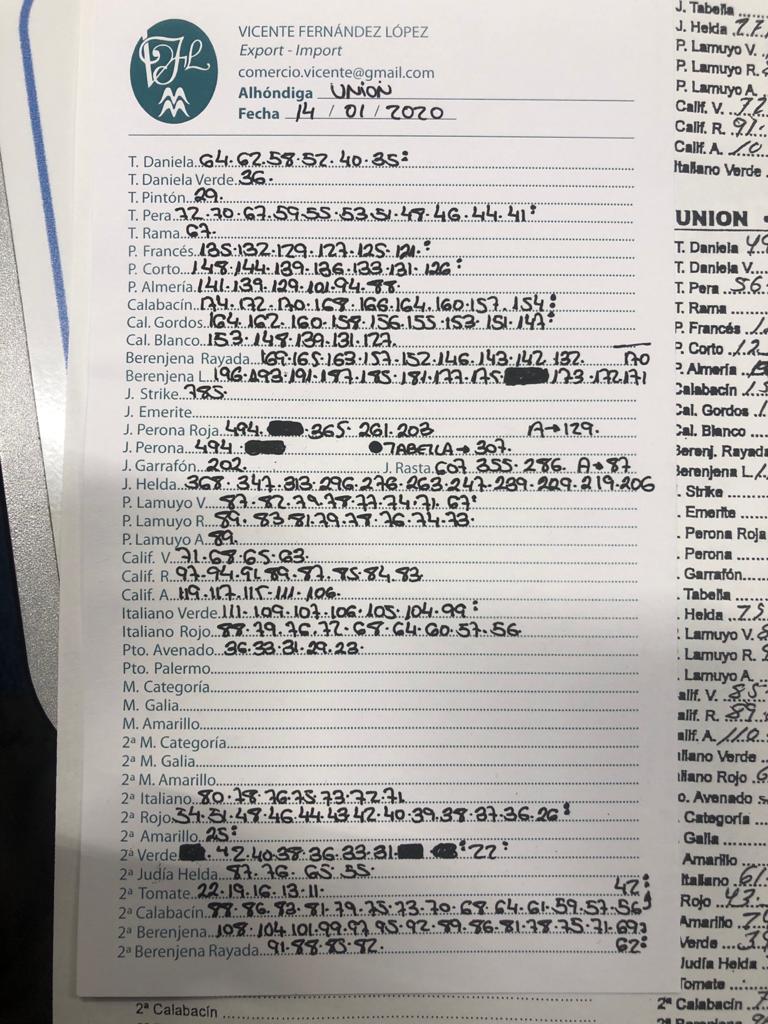 VICENTE FERNÁNDEZ LÓPEZ
Export - Import
comercio.vicente@gmail.com
Alhóndiga UNION
Fecha 14 / 01 / 2020
T. Daniela 64.62.58.52.40.35:
T. Daniela Verde 36.
T. Pintón 29.
T. Pera 72.70.67.59.55.53.51.49.46.44.41:
T. Rama 67.
P. Francés 135.132.129.127.125.121.:
P. Corto 148.144.139.136.133.131.126:
P. Almería 141.139.129.101.94.88.
Calabacín 174.172.170.168.166.164.160.157.154:
Cal. Gordos 164.162.160.158.156.155.153.151.147:
Cal. Blanco 153.148.139.131.127.
Berenjena Rayada 169.165.163.157.152.146.143.142.132. 170
Berenjena L. 196.193.191.187.185.181.177.175. 173.172.171
J. Strike 785.
J. Emerite
J. Perona Roja 494. 365.261.203 A→129.
J. Perona 494 TABELLA→307.
J. Garrafón 202. J. Rasta 607.355.286. A→87
J. Helda 368.347.313.296.276.263.247.239.209.219.206
P. Lamuyo V. 87.82.79.78.77.74.71.67:
P. Lamuyo R. 89.83.81.79.78.76.74.73.
P. Lamuyo A. 89.
Calif. V. 71.68.65.63.
Calif. R. 97.94.91.89.87.85.84.83
Calif. A. 119.117.115.111.106.
Italiano Verde 111.109.107.106.105.104.99:
Italiano Rojo 88.79.76.72.68.64.60.57.56
Pto. Avenado 36.33.31.29.23.
Pto. Palermo
M. Categoría
M. Galia
M. Amarillo
2ª M. Categoría
2ª M. Galia
2ª M. Amarillo
2ª Italiano 80.78.76.75.73.72.71
2ª Rojo 54.51.48.46.44.43.42.40.39.38.37.36.26:
2ª Amarillo 25:
2ª Verde 42.40.38.36.33.31. 22:
2ª Judía Helda 87.76.65.55.
2ª Tomate 22.19.16.13.11. 42:
2ª Calabacín 88.86.83.81.79.75.73.70.68.64.61.59.57.56
2ª Berenjena 108.104.101.99.97.95.92.89.86.81.78.75.71.69
2ª Berenjena Rayada 91.88.85.82. 62:
2ª Calabacín
J. Tabella
J. Helda
P. Lamuyo V.
P. Lamuyo R.
P. Lamuyo A.
Calif. V. 72
Calif. R. 91.
Calif. A. 10
Italiano Verde
UNION
T. Daniela
T. Daniela V.
T. Pera 56
T. Rama
P. Francés
P. Corto 12
P. Almería
Calabacín
Cal. Gordos
Cal. Blanco
Berenj. Rayada
Berenjena L
Strike
Emerite
Perona Roja
Perona
Garrafón
Tabella
Helda
Lamuyo V.
Lamuyo R.
Lamuyo A.
alif. V. 85
alif. R. 89
alif. A. 110
liano Verde
liano Rojo
o. Avenado
Categoría
Galia
Amarillo
Italiano 61
Rojo 43
Amarillo
Verde
Judía Helda
Tomate
2ª Calabacín